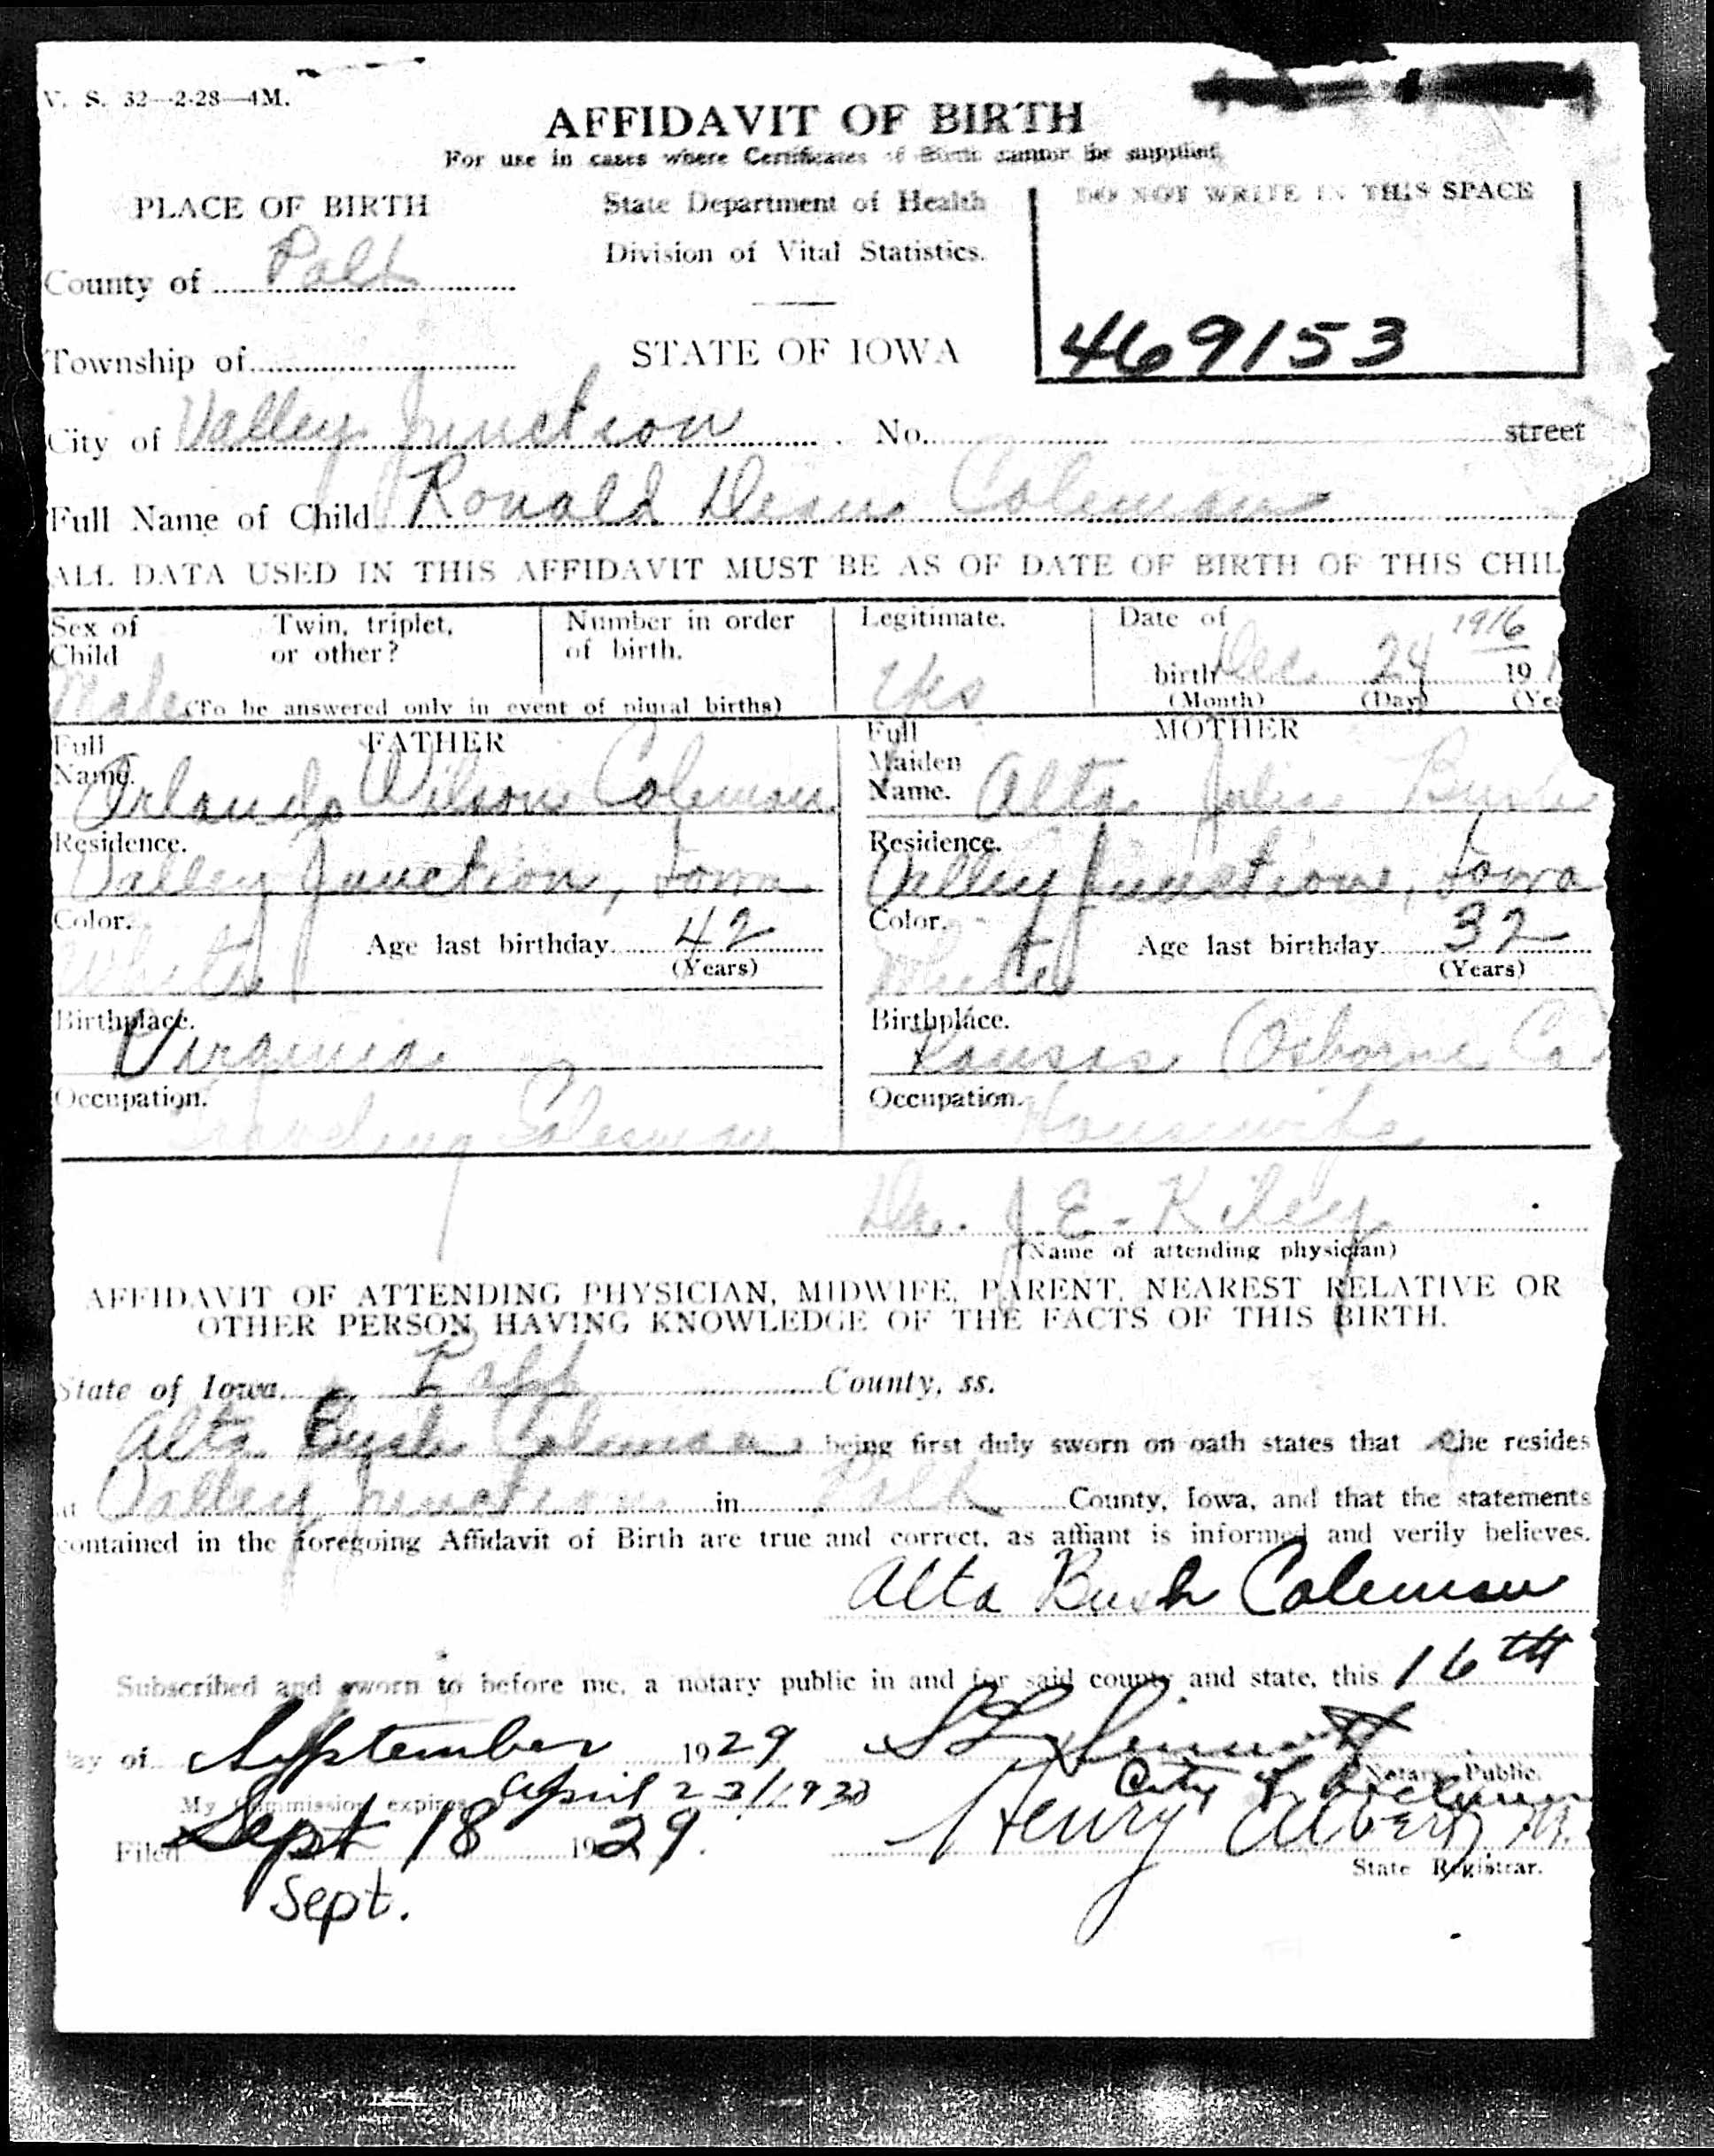 V. S. 32—2-28—4M.
AFFIDAVIT OF BIRTH
For use in cases where Certificates of Birth cannot be supplied
PLACE OF BIRTH
State Department of Health
DO NOT WRITE IN THIS SPACE
County of Polk
Division of Vital Statistics.
469153
Township of
STATE OF IOWA
City of Valley Junction No. street
Full Name of Child Ronald Dean Coleman
ALL DATA USED IN THIS AFFIDAVIT MUST BE AS OF DATE OF BIRTH OF THIS CHIL
Sex of Child Male
Twin, triplet, or other?
Number in order of birth.
(To be answered only in event of plural births)
Legitimate. Yes
Date of birth Dec. 24 1916 191
(Month) (Day) (Yea
FATHER
Full Name. Orlando Wilson Coleman
Residence. Valley Junction, Iowa
Color. White
Age last birthday 42
(Years)
Birthplace. Virginia
Occupation. Traveling Salesman
MOTHER
Full Maiden Name. Alta Julia Bush
Residence. Valley Junction, Iowa
Color. White
Age last birthday 32
(Years)
Birthplace. Kansas (Osborne Co
Occupation. Housewife
Dr. J. E. Kiley
(Name of attending physician)
AFFIDAVIT OF ATTENDING PHYSICIAN, MIDWIFE, PARENT, NEAREST RELATIVE OR
OTHER PERSON HAVING KNOWLEDGE OF THE FACTS OF THIS BIRTH.
State of Iowa. Polk County, ss.
Alta Bush Coleman being first duly sworn on oath states that she resides
at Valley Junction in Polk County, Iowa, and that the statements
contained in the foregoing Affidavit of Birth are true and correct, as affiant is informed and verily believes.
Alta Bush Coleman
Subscribed and sworn to before me, a notary public in and for said county and state, this 16th
day of September 1929
Notary Public.
My Commission expires April 23/1930
City of
Filed Sept 18 1929.
Henry Albert, M.
State Registrar.
Sept.